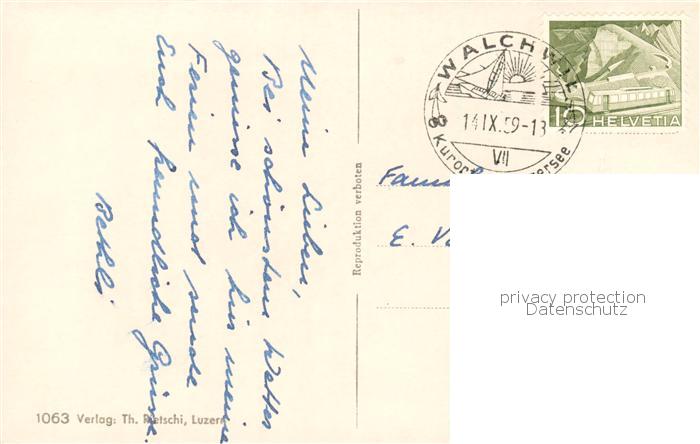 Meine Lieben,
Bei schönstem Wetter
geniesse ich hier meine
Ferien und sende
Euch freundliche Grüsse.
Bethli
1063 Verlag: Th. Pletschi, Luzern
Reproduktion verboten
WALCHWIL
14 IX.59-13
VII
Kurort
ersee
10 HELVETIA
Fam
E. V
privacy protection
Datenschutz